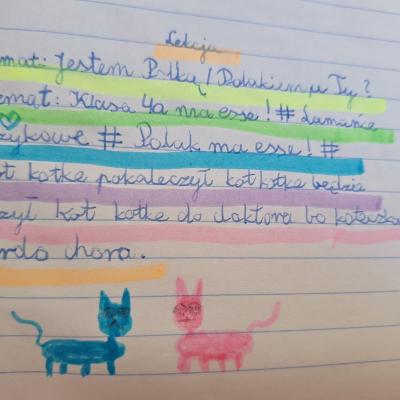 Lekcja
mat: Jestem Polką / Polakiem, a Ty?
emat: Klasa 4a ma esse! # Łamanie
zykowe # Polak ma esse! #
ot kotkę pokaleczył kot kotkę będzie
zył kot kotkę do doktora bo koteczka
rdo chora.